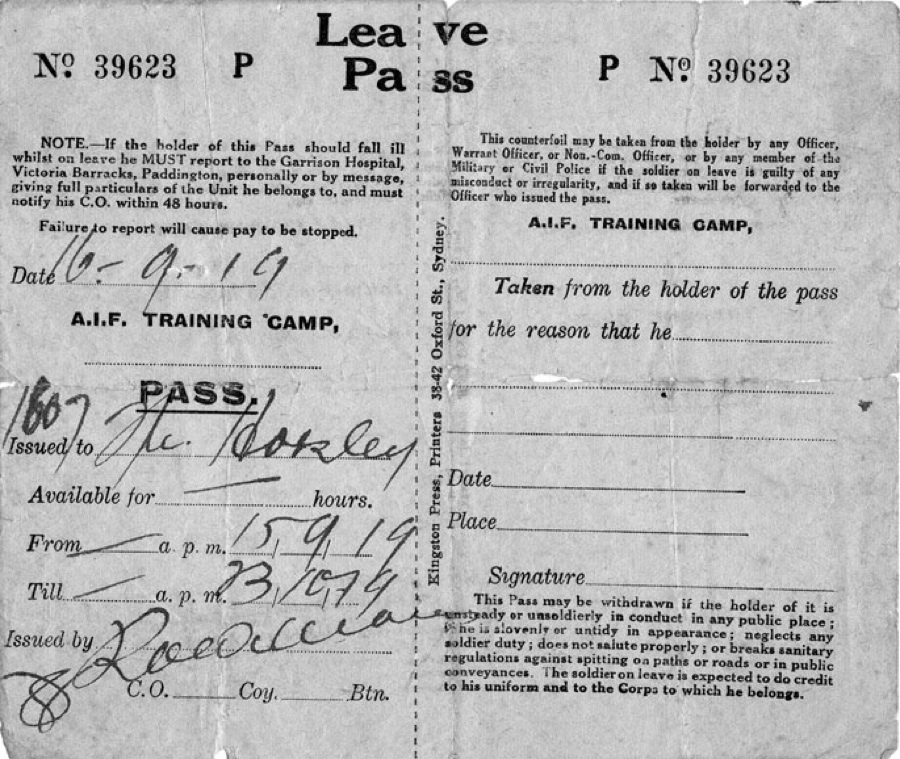 Leave
Pass
No. 39623 P
NOTE.—If the holder of this Pass should fall ill
whilst on leave he MUST report to the Garrison Hospital,
Victoria Barracks, Paddington, personally or by message,
giving full particulars of the Unit he belongs to, and must
notify his C.O. within 48 hours.
Failure to report will cause pay to be stopped.
Date 16-9-19
A.I.F. TRAINING CAMP,
PASS.
1607
Issued to Horsley
Available for — hours.
From — a. p. m. 15, 9, 19
Till — a. p. m. 23, 10, 19
Issued by
C.O. Coy. Btn.
Kingston Press, Printers 38-42 Oxford St., Sydney.
P No. 39623
This counterfoil may be taken from the holder by any Officer,
Warrant Officer, or Non.-Com. Officer, or by any member of the
Military or Civil Police if the soldier on leave is guilty of any
misconduct or irregularity, and if so taken will be forwarded to the
Officer who issued the pass.
A.I.F. TRAINING CAMP,
Taken from the holder of the pass
for the reason that he
Date
Place
Signature
This Pass may be withdrawn if the holder of it is
unsteady or unsoldierly in conduct in any public place;
if he is slovenly or untidy in appearance; neglects any
soldier duty; does not salute properly; or breaks sanitary
regulations against spitting on paths or roads or in public
conveyances. The soldier on leave is expected to do credit
to his uniform and to the Corps to which he belongs.